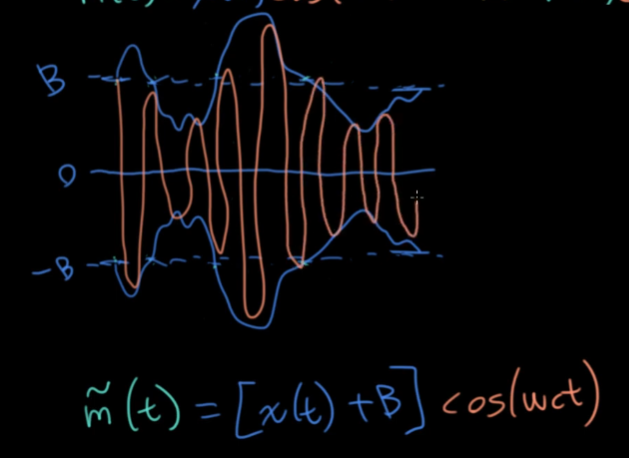 B
0
-B
m̃(t) = [x(t) + B] cos(wct)